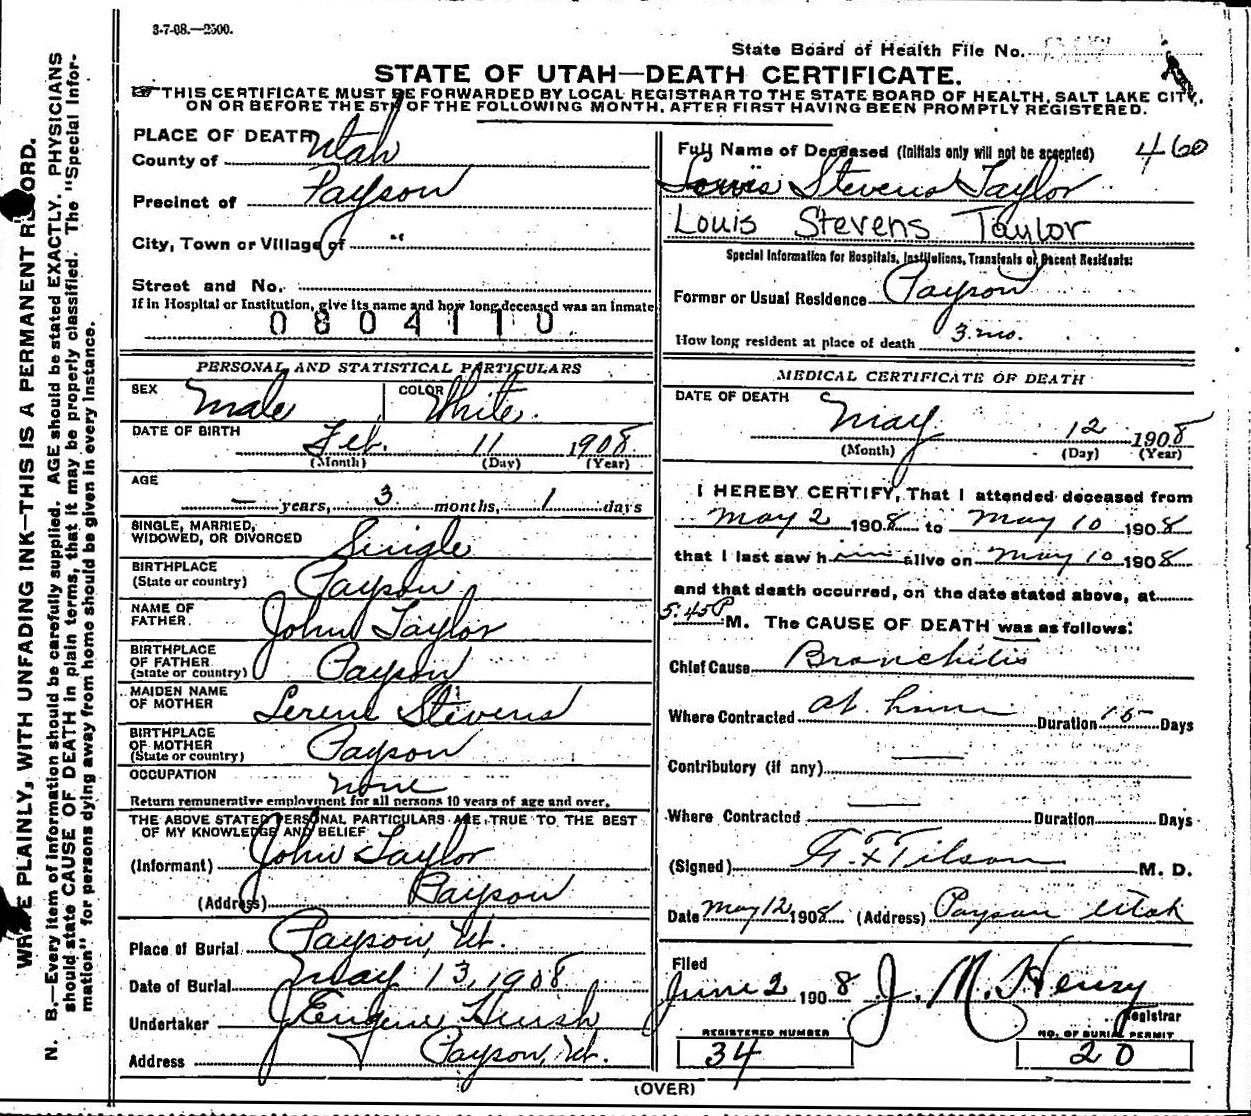 3-7-08.—2500.
State Board of Health File No.
STATE OF UTAH—DEATH CERTIFICATE.
THIS CERTIFICATE MUST BE FORWARDED BY LOCAL REGISTRAR TO THE STATE BOARD OF HEALTH, SALT LAKE CITY,
ON OR BEFORE THE 5TH OF THE FOLLOWING MONTH, AFTER FIRST HAVING BEEN PROMPTLY REGISTERED.
WRITE PLAINLY, WITH UNFADING INK—THIS IS A PERMANENT RECORD.
N. B.—Every item of information should be carefully supplied. AGE should be stated EXACTLY. PHYSICIANS
should state CAUSE OF DEATH in plain terms, that it may be properly classified. The "Special Infor-
mation" for persons dying away from home should be given in every instance.
PLACE OF DEATH
County of Utah
Precinct of Payson
City, Town or Village of "
Street and No.
If in Hospital or Institution, give its name and how long deceased was an Inmate
0804110
PERSONAL AND STATISTICAL PARTICULARS
SEX Male COLOR White
DATE OF BIRTH Feb. 11 1908
(Month) (Day) (Year)
AGE
— years, 3 months, 1 days
SINGLE, MARRIED,
WIDOWED, OR DIVORCED Single
BIRTHPLACE
(State or country) Payson
NAME OF
FATHER John Taylor
BIRTHPLACE
OF FATHER
(State or country) Payson
MAIDEN NAME
OF MOTHER Lerene Stevens
BIRTHPLACE
OF MOTHER
(State or country) Payson
OCCUPATION none
Return remunerative employment for all persons 10 years of age and over.
THE ABOVE STATED PERSONAL PARTICULARS ARE TRUE TO THE BEST
OF MY KNOWLEDGE AND BELIEF
(Informant) John Taylor
(Address) Payson
Place of Burial Payson, Ut.
Date of Burial May 13, 1908
Undertaker J Eugene Huish
Address Payson, Ut.
Full Name of Deceased (Initials only will not be accepted) 460
Louis Stevens Taylor
Louis Stevens Taylor
Special Information for Hospitals, Institutions, Transients or Recent Residents:
Former or Usual Residence Payson
How long resident at place of death 3 mo.
MEDICAL CERTIFICATE OF DEATH
DATE OF DEATH
May 12 1908
(Month) (Day) (Year)
I HEREBY CERTIFY, That I attended deceased from
May 2 1908 to May 10 1908
that I last saw him alive on May 10 1908
and that death occurred, on the date stated above, at
5.45P M. The CAUSE OF DEATH was as follows:
Chief Cause Bronchitis
Where Contracted at home Duration 15 Days
Contributory (if any) —
Where Contracted — Duration Days
(Signed) G. F. Tilson M. D.
Date May 12 1908 (Address) Payson Utah
Filed
June 2 1908 J. M. Henry
Registrar
REGISTERED NUMBER
34
NO. OF BURIAL PERMIT
20
(OVER)